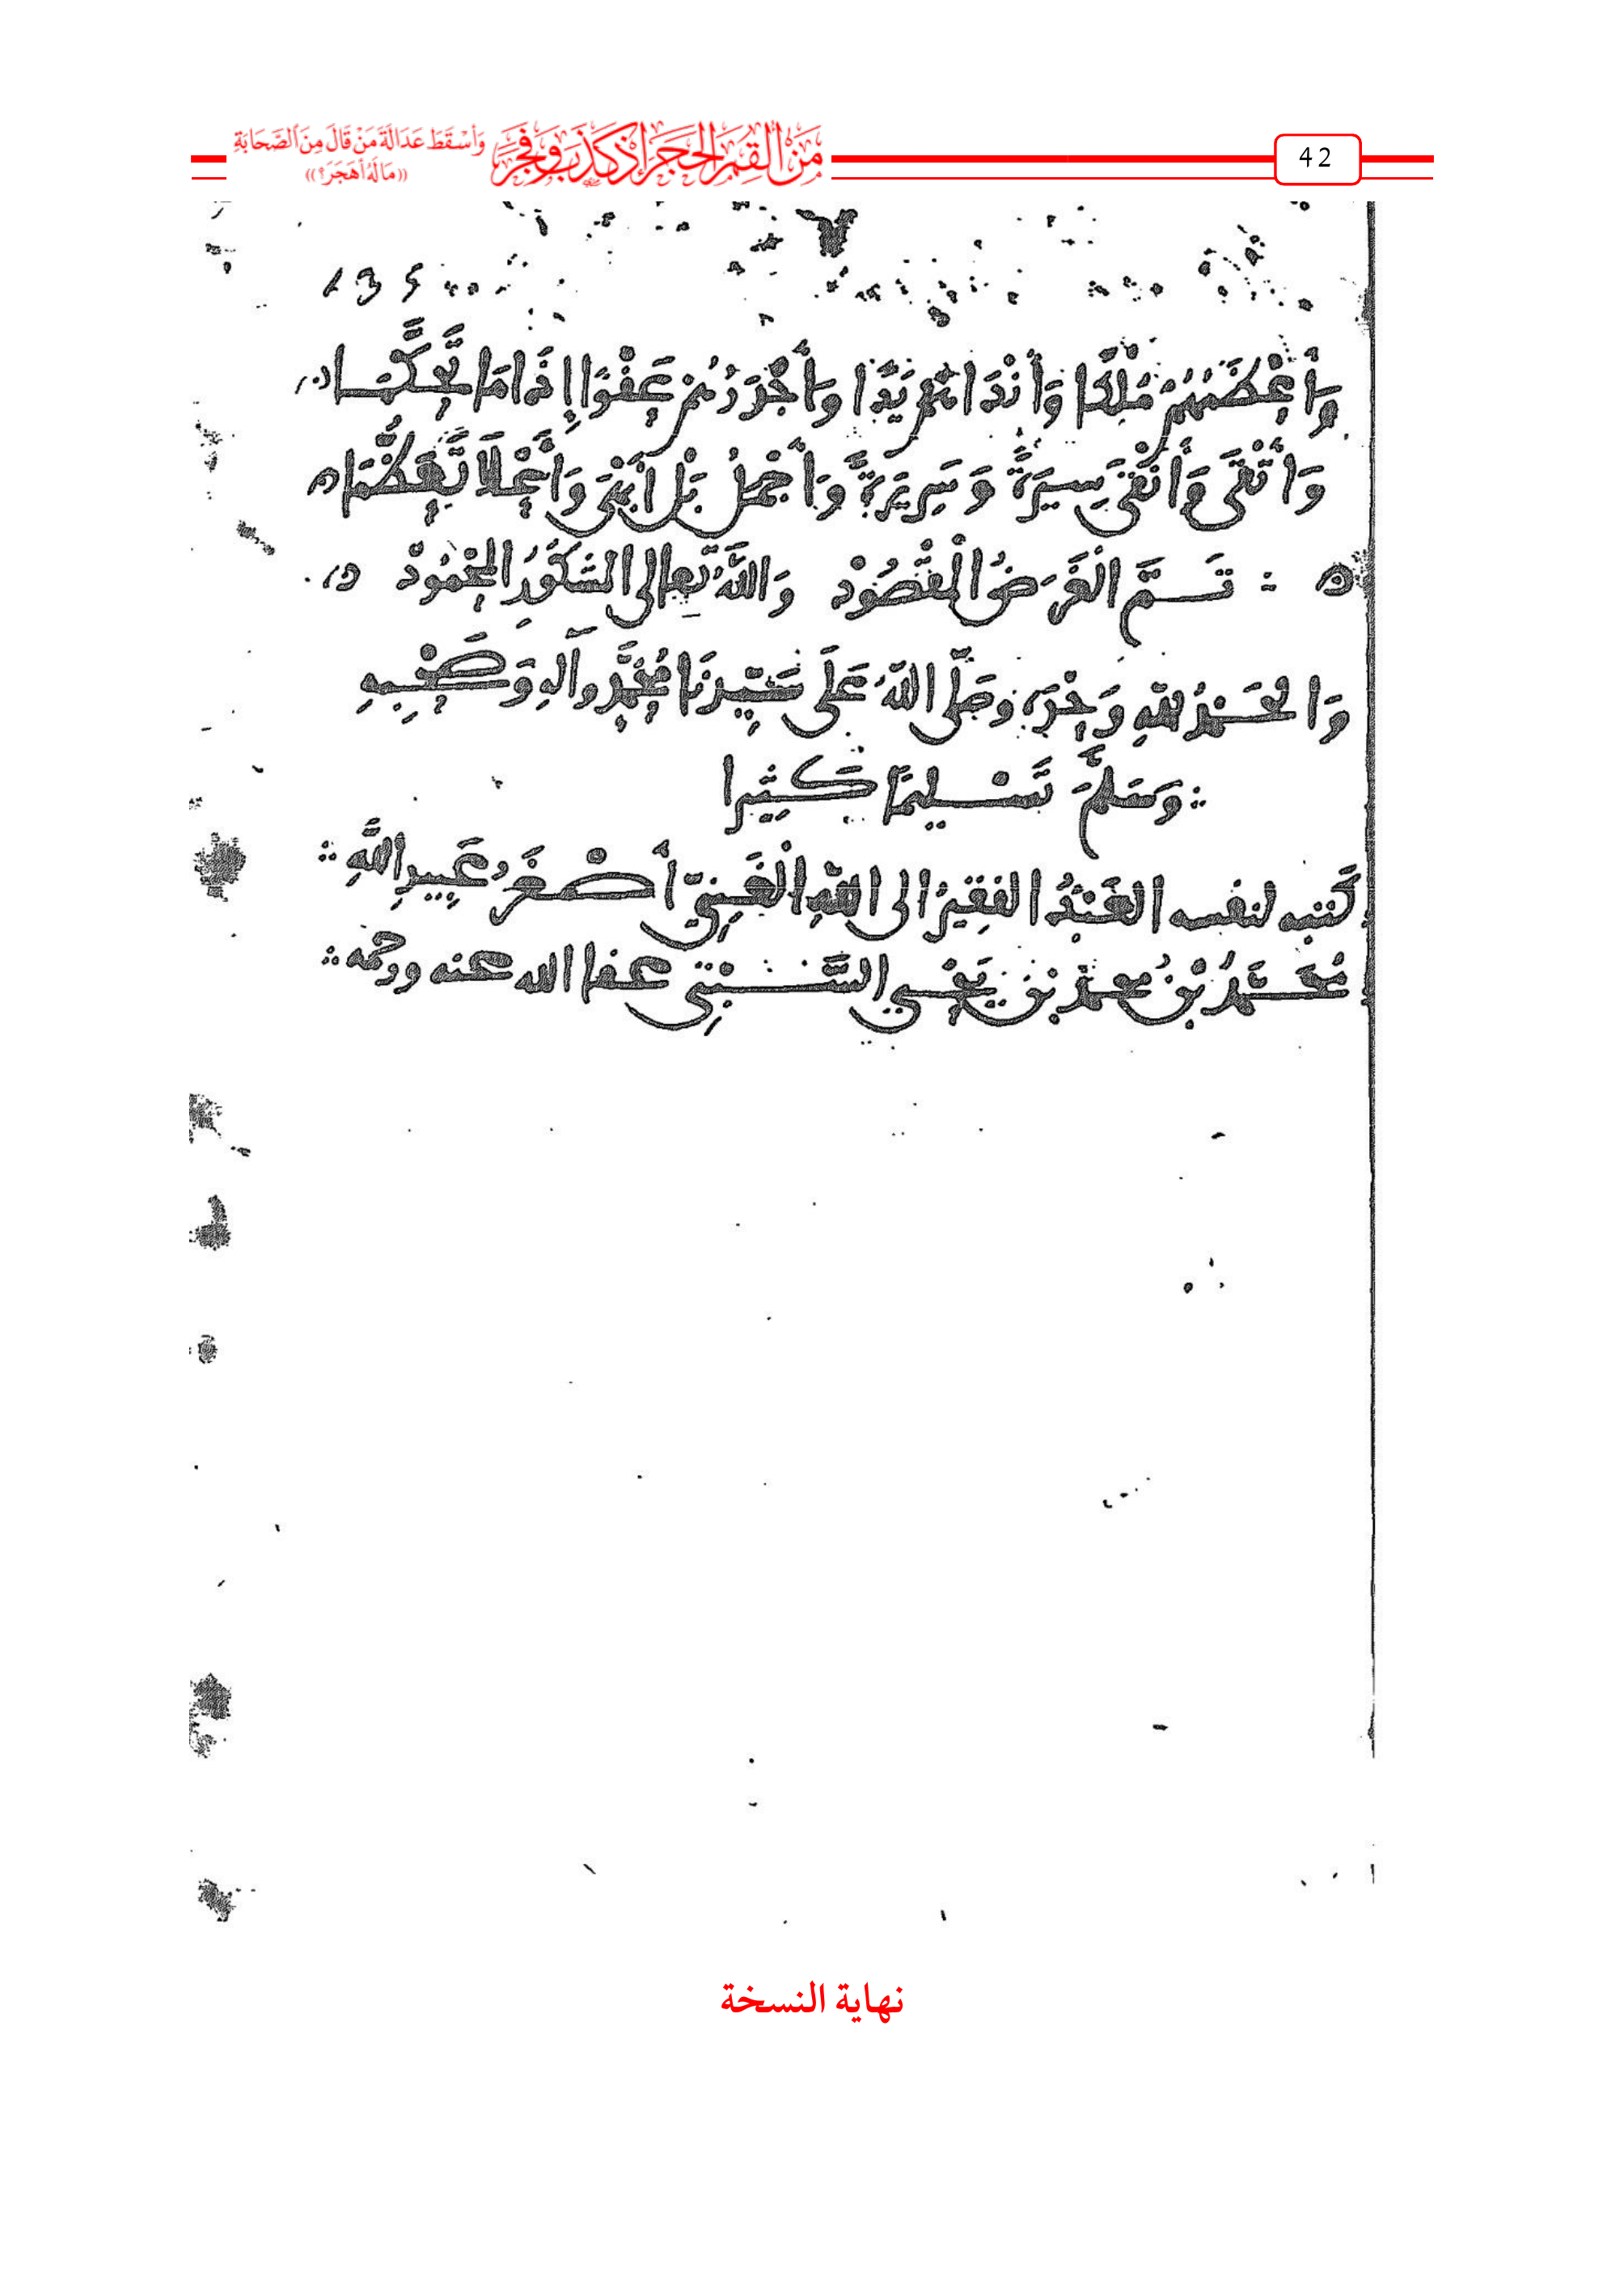 42
مَنْ أَلْقَمَ الحَجَرَ إِذْ كَذَبَ وَفَجَرَ
وَأَسْقَطَ عَدَالَةَ مَنْ قَالَ مِنَ الصَّحَابَةِ
((مَا لَهُ أَهَجَرَ؟))
135
وَأَعْظَمَهُمْ مُلْكًا وَأَنْدَاهُمْ يَدًا وَأَجْوَدُهُمْ عَفْوًا إِذَا مَا تَحَكَّمَا
وَأَتْقَى وَأَنْقَى سِيرَةً وَسَرِيرَةً وَأَجْمَلُ بَلْ أَبْهَى وَأَعْلَا تَعَظُّمَا
تَمَّ الْغَرَضُ الْمَقْصُودْ وَاللَّهُ تَعَالَى الشَّكُورُ الْمَحْمُودْ
وَالْحَمْدُ لِلَّهِ وَحْدَهُ وَصَلَّى اللَّهُ عَلَى سَيِّدِنَا مُحَمَّدٍ وَآلِهِ وَصَحْبِهِ
وَسَلَّمَ تَسْلِيمًا كَثِيرا
كَتَبَه لنفسه الْعَبْدُ الفقِيرُ إلى اللَّهِ الْغَنِيِّ أَصْغَرُ عَبِيدِ اللَّهِ
مُحَمَّدُ بْنُ محمد بْن يَحْيى السَّبْتِي عفا الله عنه ورحمه
نهاية النسخة